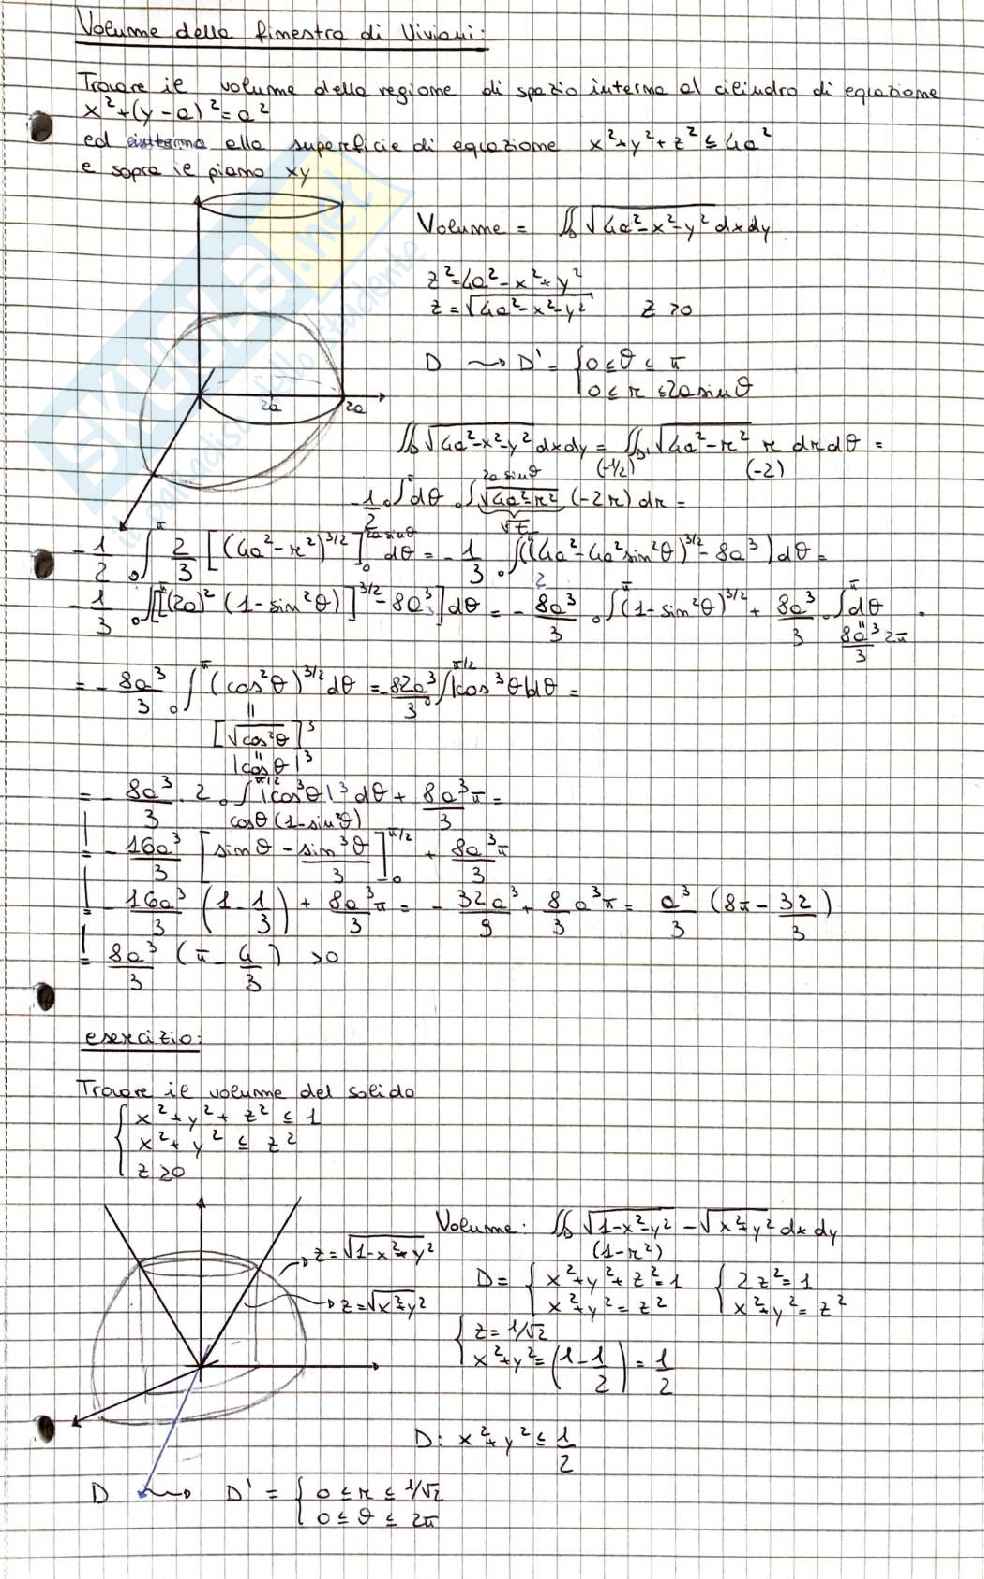 Volume della finestra di Viviani:
Trovare il volume della regione di spazio interna al cilindro di equazione
x²+(y-a)²=a²
ed interna alla superficie di equazione x²+y²+z² ≤ 4a²
e sopra il piano xy
Volume = ∬_D √(4a²-x²-y²) dxdy
z²=4a²-x²+y²
z=√(4a²-x²-y²) z>0
D ⇝ D' = { 0 ≤ θ ≤ π
0 ≤ r ≤ 2a sinθ
2a 2a
∬_D √(4a²-x²-y²) dxdy = ∬_D' √(4a²-r²) r dr dθ =
(-1/2) (-2)
-1/2 ∫₀^π dθ ∫₀^(2a sinθ) √(4a²-r²) (-2r) dr =
√t
-1/2 ∫₀^π 2/3 [(4a²-r²)^(3/2)]₀^(2a sinθ) dθ = -1/3 ∫₀^π ((4a²-4a²sin²θ)^(3/2) - 8a³) dθ =
-1/3 ∫₀^π [[(2a)²(1-sin²θ)]^(3/2) - 8a³] dθ = -8a³/3 ∫₀^π (1-sin²θ)^(3/2) + 8a³/3 ∫₀^π dθ
8a³/3 2π
= -8a³/3 ∫₀^π (cos²θ)^(3/2) dθ = -82a³/3 ∫₀^(π/2) |cos³θ| dθ =
[√cos²θ]³
|cosθ|³
= -8a³/3 · 2 ∫₀^(π/2) |cos³θ|³ dθ + 8a³/3 π =
cosθ (1-sin²θ)
= -16a³/3 [sinθ - sin³θ/3]₀^(π/2) + 8a³/3 π
= -16a³/3 (1-1/3) + 8a³/3 π = -32a³/9 + 8/3 a³π = a³/3 (8π - 32/3)
= 8a³/3 (π - 4/3) >0
esercizio:
Trovare il volume del solido
{ x²+y²+z² ≤ 1
x²+y² ≤ z²
z ≥0
Volume: ∬_D √(1-x²-y²) - √(x²+y²) dx dy
(1-r²)
z=√(1-x²+y²)
z=√(x²+y²)
D= { x²+y²+z²=1 { 2z²=1
x²+y²=z² x²+y²=z²
{ z=1/√2
x²+y²=(1-1/2)=1/2
D: x²+y² ≤ 1/2
D ⇝ D' = { 0 ≤ r ≤ 1/√2
0 ≤ θ ≤ 2π